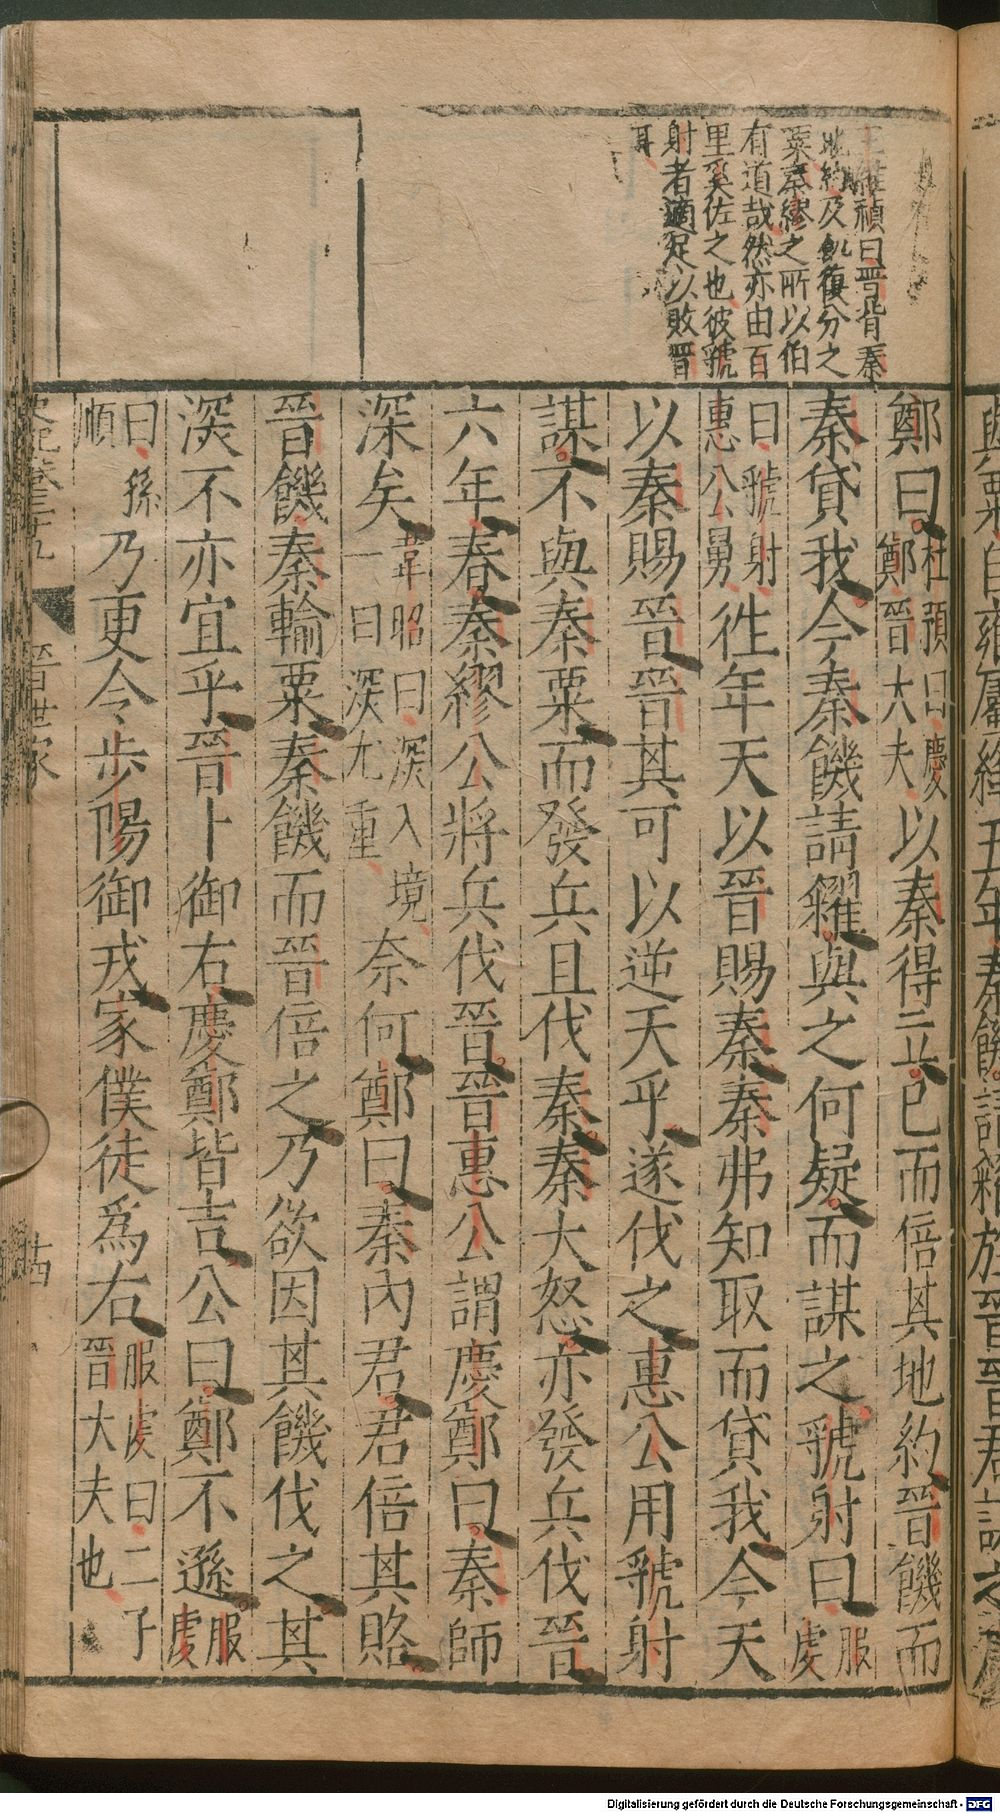 王維禎曰晉背秦
地約及飢復分之
粟秦繆之所以伯
有道哉然亦由百
里奚佐之也彼虢
射者適足以敗晉
耳
鄭曰杜預曰慶鄭晉大夫以秦得立已而倍其地約晉饑而
秦貸我今秦饑請糴與之何疑而謀之虢射曰服虔
曰虢射惠公舅徃年天以晉賜秦秦弗知取而貸我今天
以秦賜晉晉其可以逆天乎遂伐之惠公用虢射
謀不與秦粟而發兵且伐秦秦大怒亦發兵伐晉
六年春秦繆公將兵伐晉晉惠公謂慶鄭曰秦師
深矣韋昭曰深入境一曰深尤重奈何鄭曰秦內君君倍其賂
晉饑秦輸粟秦饑而晉倍之乃欲因其饑伐之其
深不亦宜乎晉卜御右慶鄭皆吉公曰鄭不遜服虔
曰孫順乃更令步陽御戎家僕徒爲右服虔曰二子晉大夫也
晉世家
與粟自雍屬絳五年秦饑請糴於晉晉君謀之
Digitalisierung gefördert durch die Deutsche Forschungsgemeinschaft - DFG